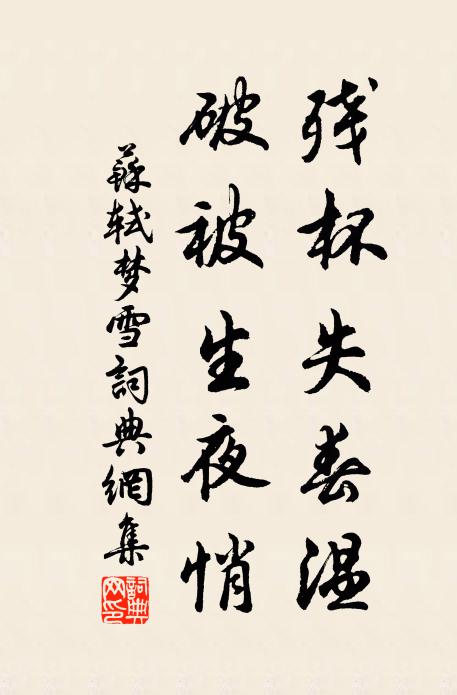 残杯失春温
破被生夜悄
蘇轼梦雪詞典網集
詞典网印